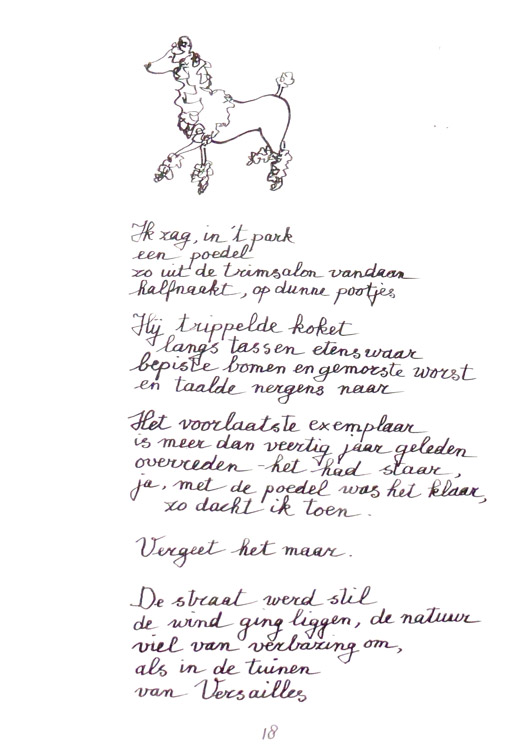 Ik zag, in 't park
een poedel
zo uit de trimsalon vandaan
halfnaakt, op dunne pootjes
Hij trippelde koket
langs tassen etenswaar
bepiste bomen en gemorste worst
en taalde nergens naar
Het voorlaatste exemplaar
is meer dan veertig jaar geleden
overreden - het had staar,
ja, met de poedel was het klaar,
zo dacht ik toen.
Vergeet het maar.
De straat werd stil
de wind ging liggen, de natuur
viel van verbazing om,
als in de tuinen
van Versailles
18